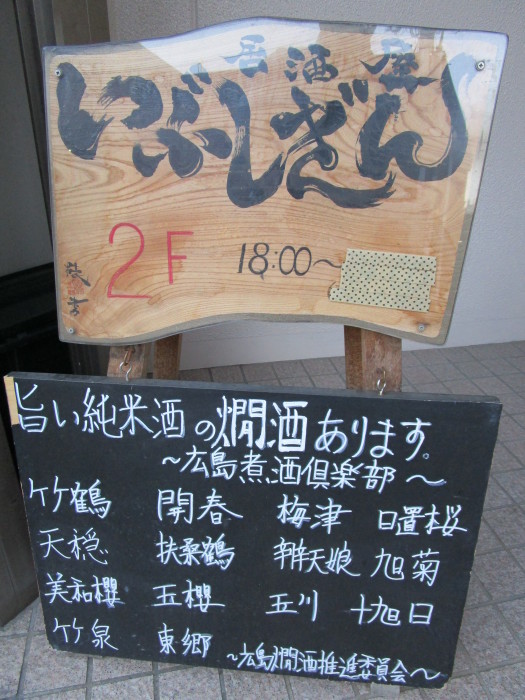 居酒屋
いぶしぎん
2F 18:00～
旨い純米酒の燗酒あります。
～広島煮酒倶楽部～
竹鶴 開春 梅津 日置桜
天穏 扶桑鶴 辨天娘 旭菊
美和櫻 玉櫻 玉川 十旭日
竹泉 東郷 ～広島燗酒推進委員会～